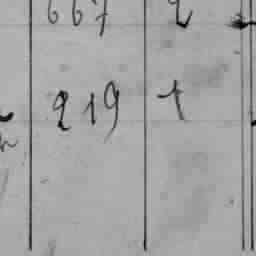 667 2
219 1